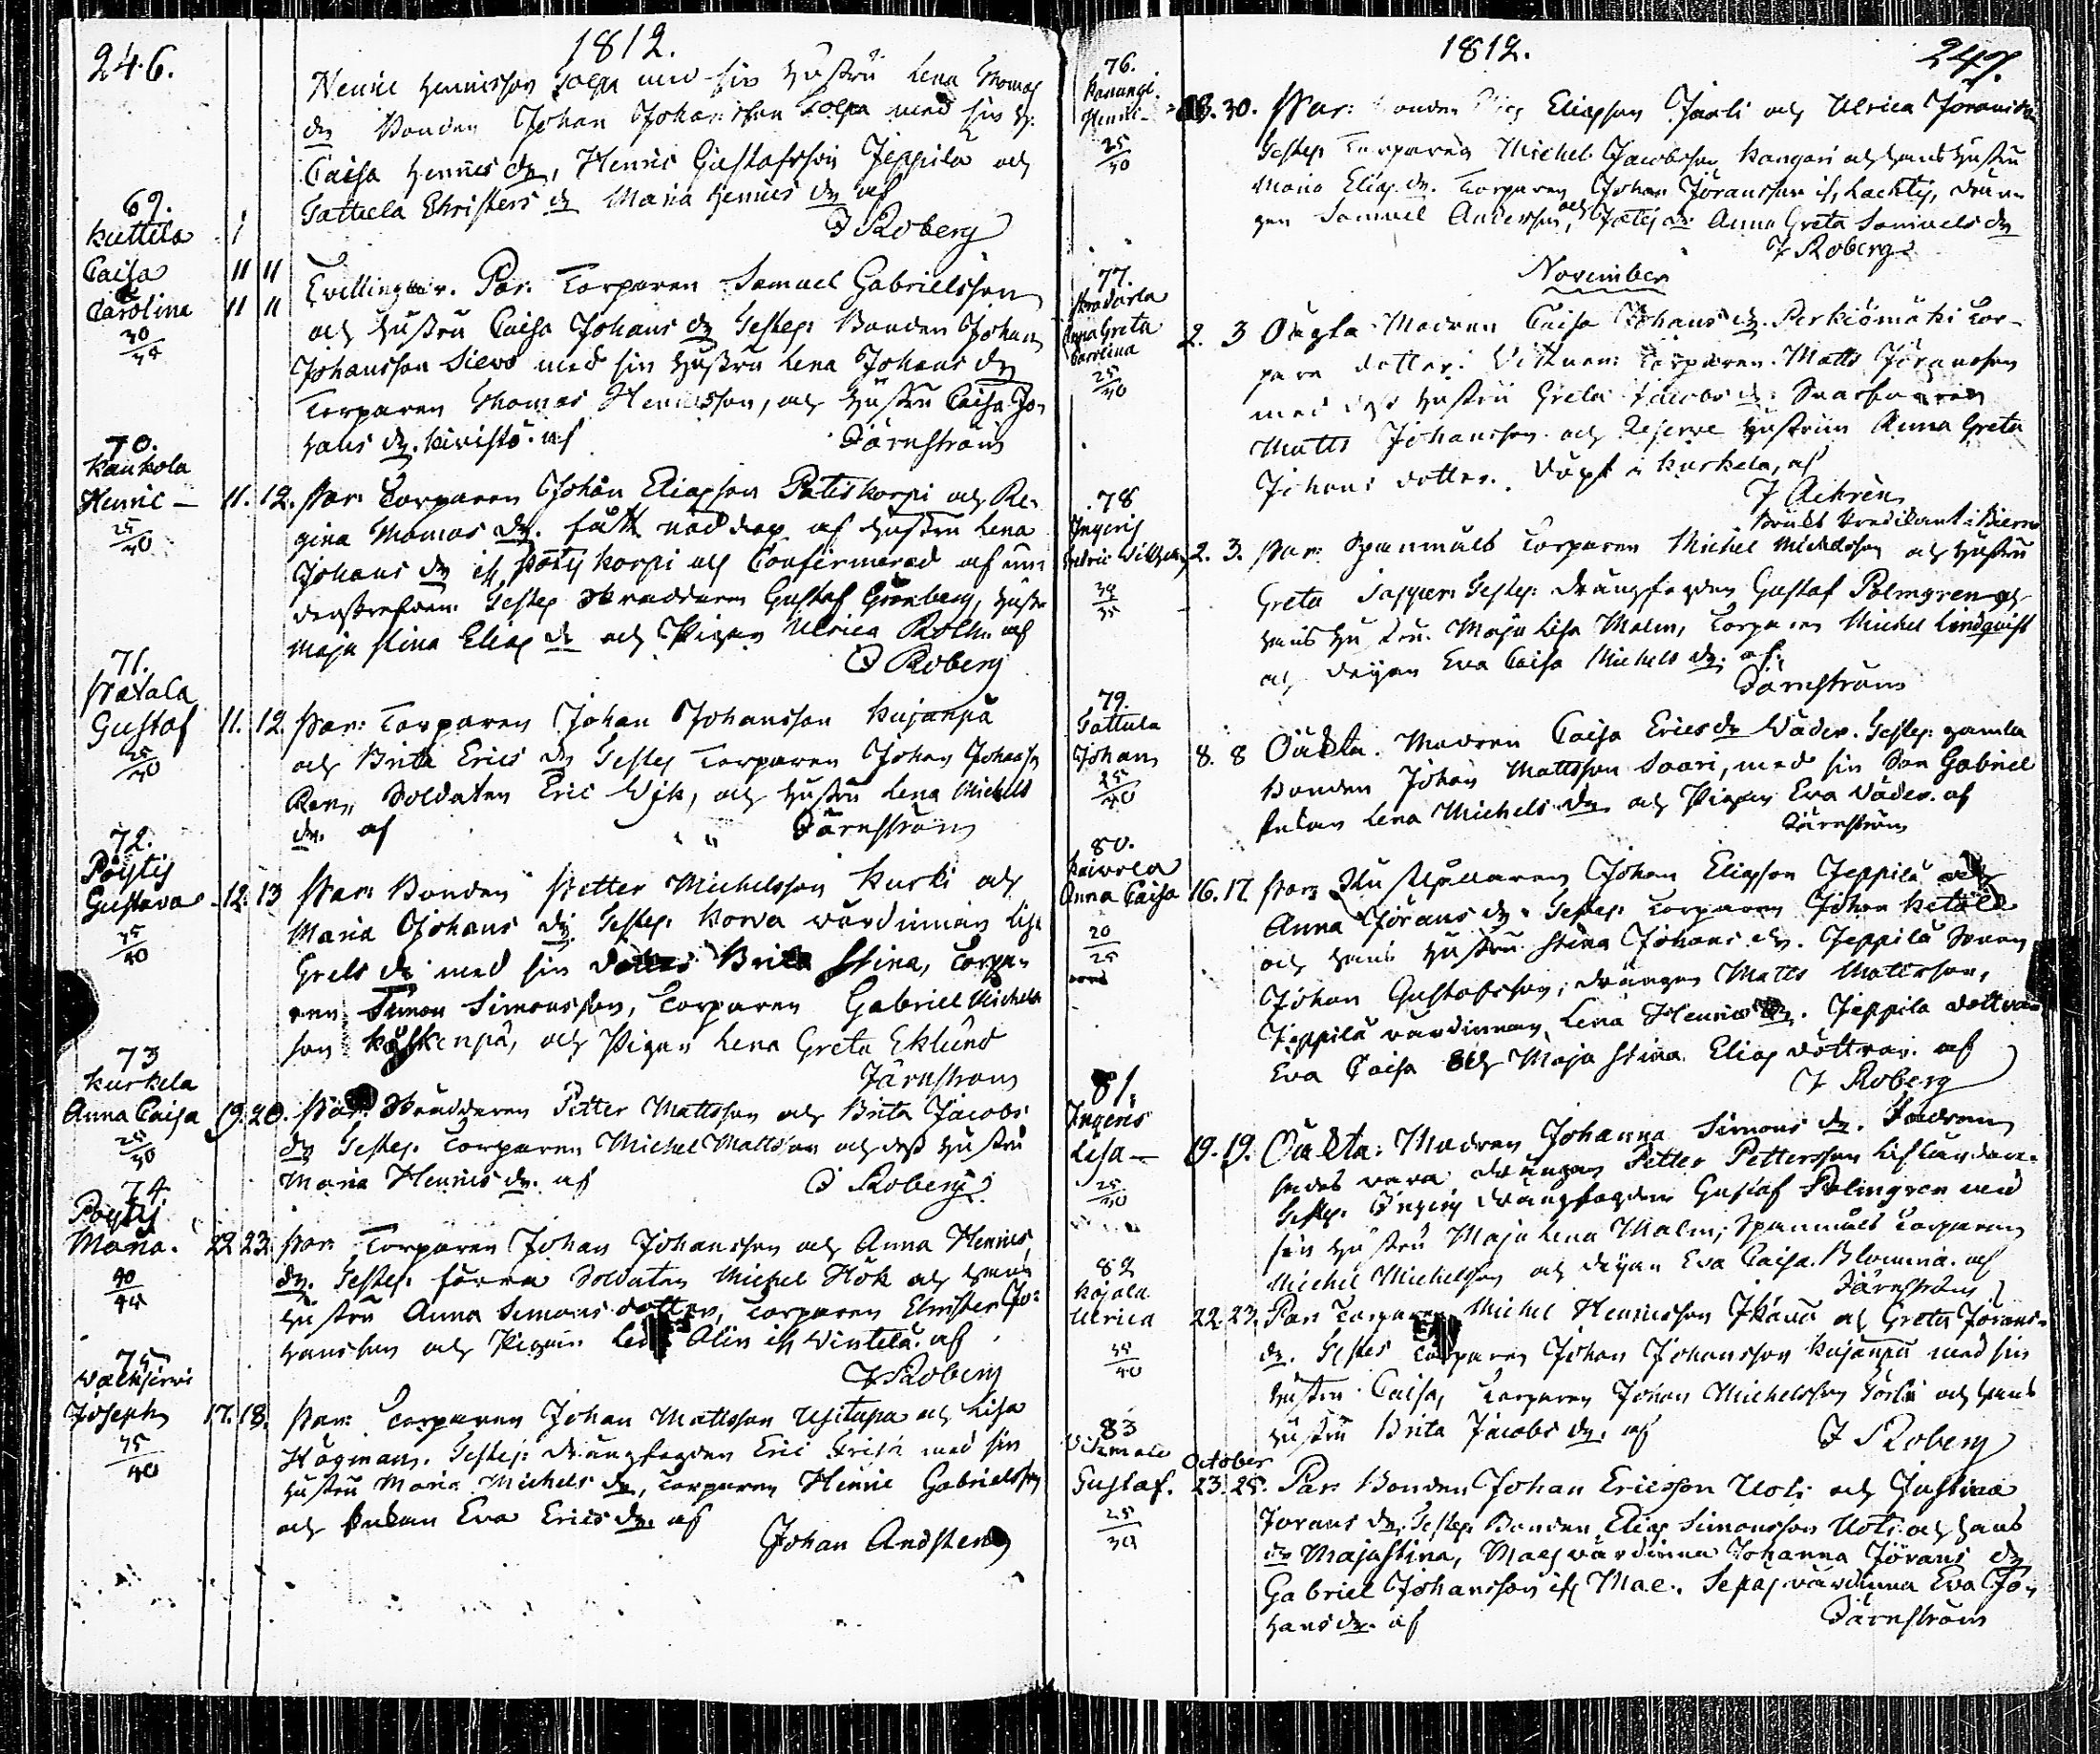 246.
1812.
Henric Henricsson Tolpa med sin Hustru Lena Thomas
dr Bonden Johan Johansson Tolpa med sin H:
Caisa Henrics dr, Henric Gustafsson Jeppila och
Tattula Christers dr Maria Henrics dr af
J Roberg
69.
Kuttila
Caisa
&
Carolina
30
11 11
11 11
Tvillingar. Par: Torparen Samuel Gabrielsson
och Hustru Caisa Johans dr Testes: Bonden Johan
Johansson Sievo med sin Hustru Lena Johans dr
Torparen Thomas Henricsson, och Hustru Caisa Jo-
hans dr. Kivistö. af
Järnström
70.
Kaukola
Henric –
25
30
11. 12. Par: Torparen Johan Eliasson Patis Korpi och Re-
gina Thomas dr. fått nöddop af Hustru Lena
Johans dr if Pöytis Korpi och Confirmerad af un-
dertecknad. Testes Skräddaren Gustaf Grönberg, Hustr
Maja Stina Elias dr och Pigan Ulrica af
J Roberg
71.
Gustaf
25
30
11. 12 Par: Torparen Johan Johansson Kujanpä
och Brita Erics dr Testes Torparen Johan Johansson
Soldaten Eric Wik, och Hustru Lena Michels
dr. af
Järnström
72.
Pöytis
Gustava
35
40
12. 13 Par: Bonden Petter Michelsson Kurki och
Maria Johans dr Testes: Korva värdinnan Lisa
Grels dr med sin dotter Brita Stina, Torpa-
ren Simon Simonsson, Torparen Gabriel Michels
son och Pigan Lena Greta Eklund
Järnström
73
Kurkela
Anna Caisa
25
30
19. 20. Par: Skräddaren Petter Mattsson och Brita Jacobs
dr Testes: Torparen Michel Mattsson och dess Hustru
Maria Henrics dr. af
J Roberg
74.
Pöytis
Maria.
40
45
22 23 Par: Torparen Johan Johansson och Anna Henrics
dr. Testes: förra Soldaten Michel Hök och hans
Hustru Anna Simons dotter, Torparen Christer Jo-
hansson och Pigan Olin if Vintela. af
J Roberg
75
Valkjervi
Joseph
35
40
17. 18. Par: Torparen Johan Mattsson Usitupa och Lisa
Högman. Testes: Drängfogden Eric med sin
Hustru Maria Michels dr, Torparen Henric Gabrielsson
och Enkan Eva Erics dr. af
Johan Andsten
1812.
247.
76.
Kanungi
Henric –
25
30
30. Par: Bonden Elias Eliasson Jaoli och Ulrica Jörans dr
Testes Torparen Michel Jacobsson Kangari och hans Hustru
Maria Elias dr. Torparen Johan Jöransson if Lachtis, Drän-
gen Samuel Andersson, och Anna Greta Samuels dr
J Roberg
November
77.
Anna Greta
Carolina
25
30
2. 3 Oägta Modren Caisa Johans dr. Perkiömäki Tor-
pare dotter. Vittnen: Torparen Matts Jöransson
med dess Hustru Greta Jacobs dr
Matts Johansson och Reserve Hustrun Anna Greta
Johans dotter. Döpt i Kurkela, af
J Aehrén
78
Ingeris
30
35
2. 3. Par: Spanmåls Torparen Michel Michelsson och Hustru
Greta Testes: Drängfogden Gustaf Palmgren och
hans Hustru Maja Lisa Malm, Torparen Michel Lindqvist
och Deijan Eva Caisa Michels dr. af
Järnström
79.
Tattula
Johan
25
30
8. 8 Oäkta. Modren Caisa Erics dr Väder. Testes: gamla
Bonden Johan Mattsson Saari, med sin Son Gabriel
Enkan Lena Michels dr och Pigan Eva Väder. af
Järnström
80.
Kaivola
Anna Caisa
20
25
16. 17 Par: Johan Eliasson Jeppilä och
Anna Jörans dr. Testes: Torparen Johan Ketola
och hans Hustru Stina Johans dr. Jeppilä Sonen
Johan Gustafsson, Drängen Matts Mattsson,
Jeppilä värdinnan, Lena Henrics dr. Jeppilä döttrar
Eva Caisa och Maja Stina Elias döttrar. af
J Roberg
81.
Ingeris
Lisa –
25
30
19. 19. Oäkta: Modren Johanna Simons dr. Fadren
vara Drängen Petter Pettersson
Testes: Ingeris Drängfogden Gustaf Palmgren med
sin Hustru Maja Lena Malm, Spanmåls Torparen
Michel Michelsson och Deijan Eva Caisa Blomma. af
Järnström
82
Kojola
Ulrica
35
40
22. 23. Par: Torparen Michel Henricsson och Greta Jörans-
dr. Testes Torparen Johan Johansson Kujanpä med sin
Hustru Caisa, Torparen Johan Michelsson och hans
Hustru Brita Jacobs dr. af
J Roberg
83
October
Gustaf.
25
30
23. 25. Par: Bonden Johan Ericsson Uoti och Justina
Jörans dr. Testes Bonden Elias Simonsson Uoti och hans
dr Majastina, Maes värdinna Johanna Jörans dr
Gabriel Johansson if Mae. Sepäs värdinna Eva Jo-
hans dr. af
Järnström